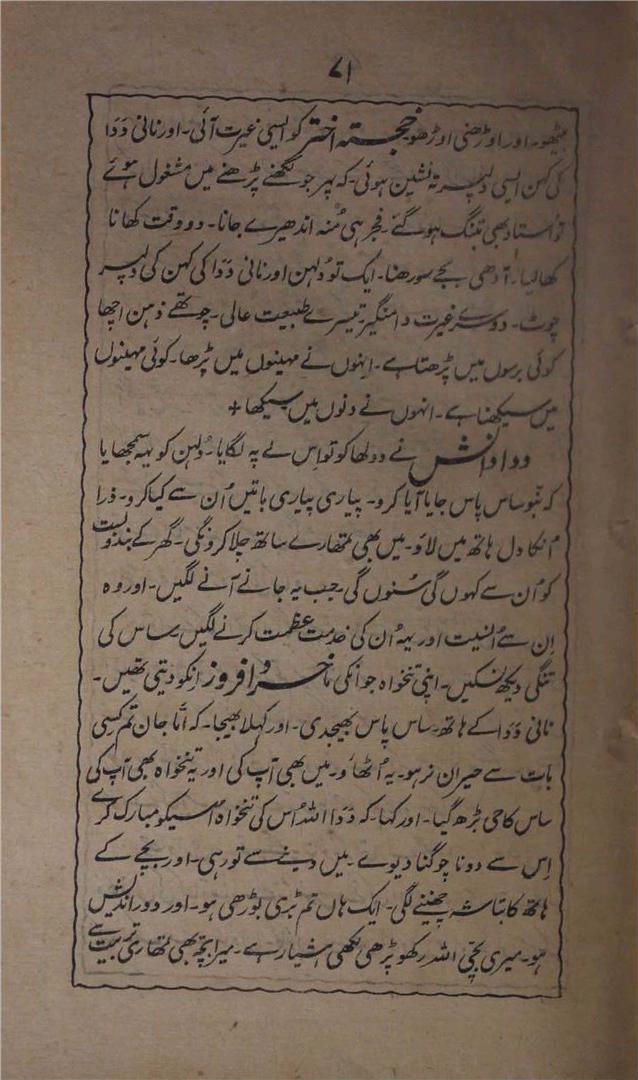 ۷۱
بیٹھو۔ اور اوڑھنی اوڑھو۔ خجستہ اختر کو ایسی غیرت آئی۔ اور نانی دَدَا
کی کہن ایسی دلپر تہ نشین ہوئی۔ کہ پھر جو لکھنے پڑھنے میں مشغول ہوئے
تو اُستاد بھی تنگ ہو گئے۔ فجر ہی مُنہ اندھیرے جانا۔ دو وقت کھانا
کھا لیا۔ آدھی بجے سو رھنا۔ ایک تو دُلہن اور نانی دَدَا کی کہن کی دلپر
چوٹ۔ دوسرے غیرت دامنگیر تیسرے طبیعت عالی۔ چوتھے ذہن اچھا
کوئی برسوں میں پڑھتا ہے۔ اِنہوں نے مہینوں میں پڑھا۔ کوئی مہینوں
میں سیکھتا ہے۔ انہوں نے دنوں میں سیکھا +
ددا دانش نے دولھا کو تو اِس لے پہ لگایا۔ دُلہن کو یہہ سمجھایا
کہ بنّو ساس پاس جایا آیا کرو۔ پیاری پیاری باتیں اُن سے کیا کرو۔ ذرا
اُنکا دل ہاتھ میں لاؤ۔ میں بھی تمھارے ساتھ چلا کرونگی۔ گھر کے بندوبست
کو اُن سے کہوں گی سُنوں گی۔ جب یہ جانے آنے لگیں۔ اور وہ
اِن سے اُنسیت اور یہہ اُن کی خدمت عظمت کرنے لگیں۔ ساس کی
تنگی دیکھ نسکیں۔ اپنی تنخواہ جو اُنکی ما خرد افروز اِنکو دیتی تھیں۔
نانی دَدَا کے ہاتھ۔ ساس پاس بھیجدی۔ اور کہلا بھیجا۔ کہ امّا جان تم کسی
بات سے حیران نرہو۔ یہ اُٹھاؤ۔ میں بھی آپ کی اور یہ تنخواہ بھی آپ کی
ساس کا جی بڑھ گیا۔ اور کہا۔ کہ دَدَا اللہ اُس کی تنخواہ اُسیکو مبارک کرے
اِس سے دونا چوگنا دیوے۔ میں دینے سے تو رہی۔ اور بچے کے
ہاتھ کا بتاشہ چھیننے لگی۔ ایک ہاں تم بڑی بوڑھی ہو۔ اور دور اندیش
ہو۔ میری بچی اللہ رکھو پڑھی لکھی اشیار ہے۔ میرا بچّہ بھی تمھاری تربیت سے